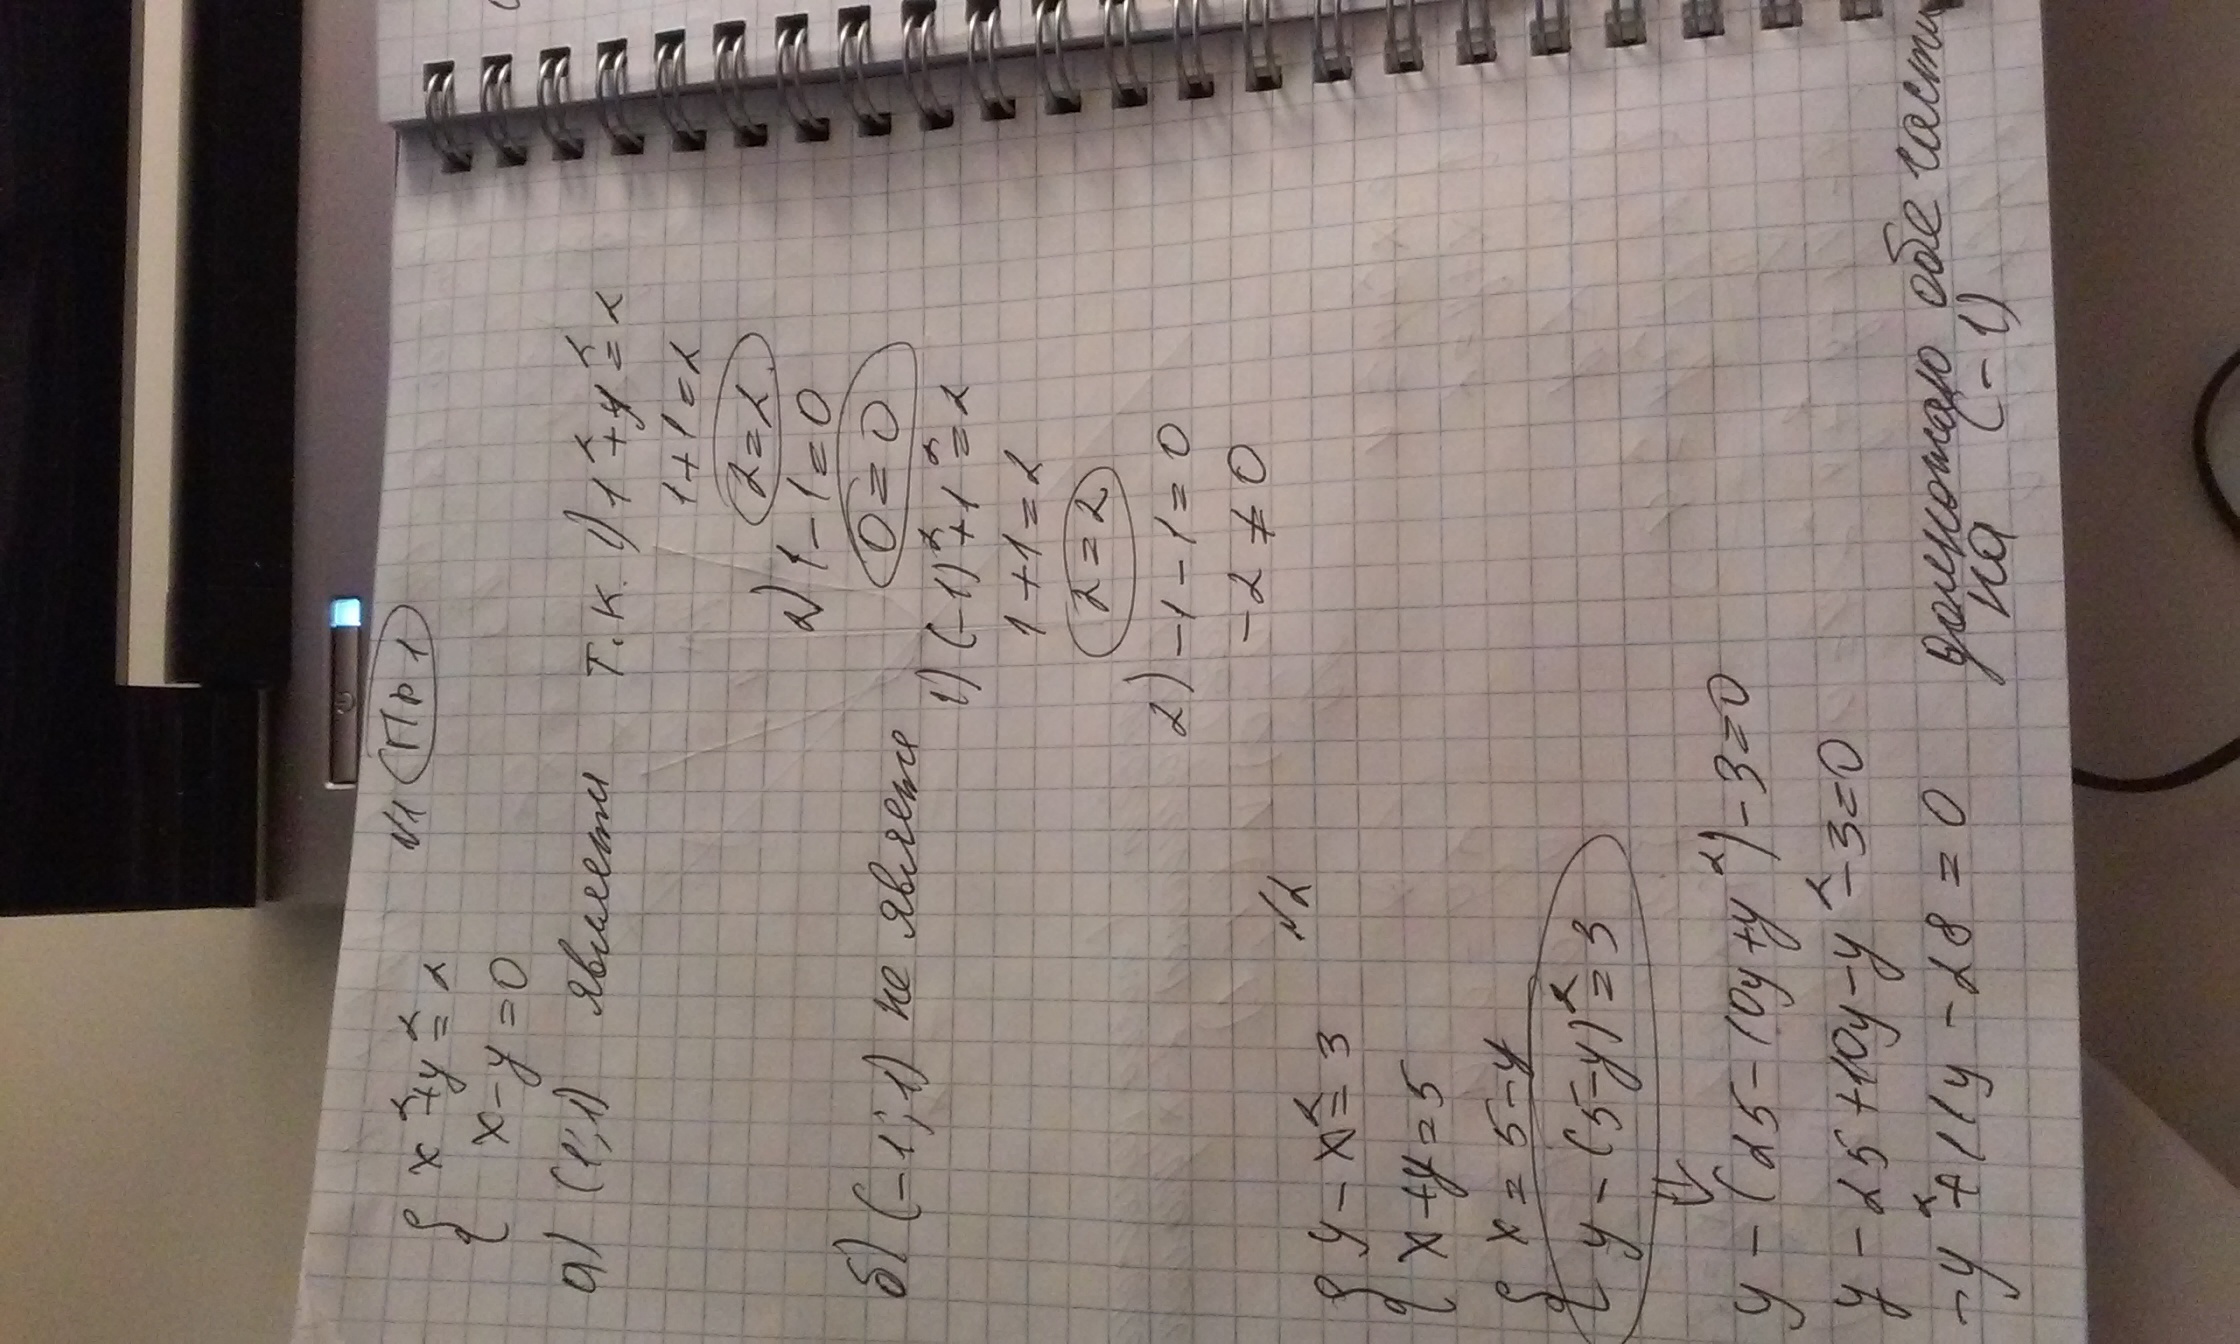 №1 Пр 1
{ x²+y²=2
x-y=0
а) (1;1) является т.к. 1) 1²+y²=2
1+1=2
2=2
2) 1-1=0
0=0
б) (-1;1) не являетя 1) (-1)²+1²=2
1+1=2
2=2
2) -1-1=0
-2≠0
№2
{ y-x²=3
x+y=5
{ x=5-y
y-(5-y)²=3
⇓
y-(25-10y+y²)-3=0
y-25+10y-y²-3=0
-y²+11y-28=0 умножаю обе части
на (-1)